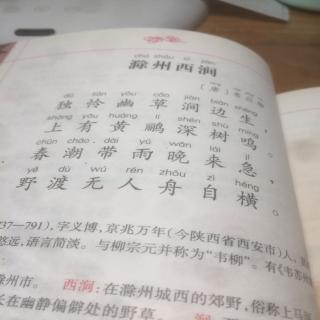 chú zhōu xī jiàn
滁州西涧
〔唐〕韦应物
dú lián yōu cǎo jiàn biān shēng
独怜幽草涧边生，
shàng yǒu huáng lí shēn shù míng
上有黄鹂深树鸣。
chūn cháo dài yǔ wǎn lái jí
春潮带雨晚来急，
yě dù wú rén zhōu zì héng
野渡无人舟自横。
737—791），字义博，京兆万年（今陕西省西安市）人，
悠远，语言简淡。与柳宗元并称为“韦柳”。有《韦苏州
滁州市。 西涧：在滁州城西的郊野，俗称上马河
长在幽静偏僻处的野草。